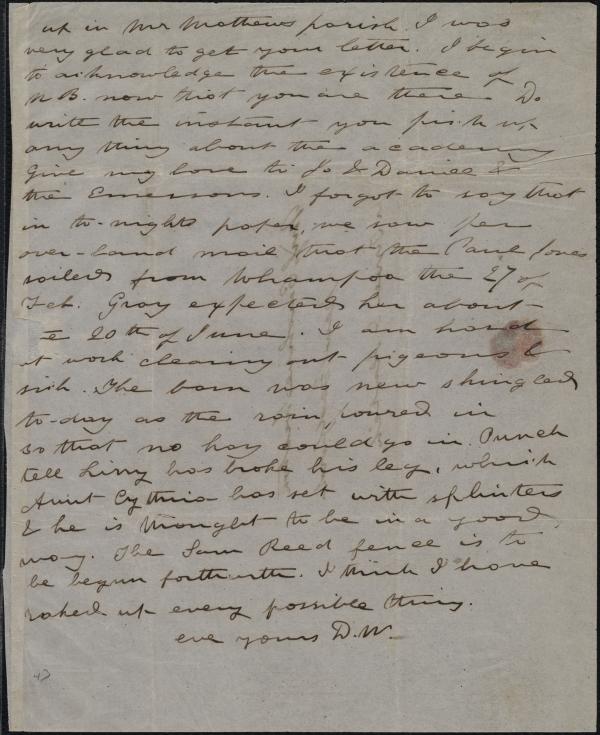 up in Mr Mathews parish. I was
very glad to get your letter. I begin
to acknowledge the existence of
N B. now that you are there Do
write the instant you pick up
any thing about the academy
Give my love to Jo & Daniel &
the Emersons. I forgot to say that
in to-nights paper, we saw per
over-land mail that the Paul Jones
sailed from Whampoa the 27 of
Feb. Gray expected her about
20th of June. I am hard
at work clearing out pigeons &
sich. The barn was new shingled
to-day as the rain poured in
so that no hay could go in. Punch
tell Lizzy has broke his leg, which
Aunt Cythia has set with splinters
& he is thought to be in a good
way. The Sam Reed fence is to
be begun forthwith. I think I have
raked up every possible thing.
eve yours D.W.
47